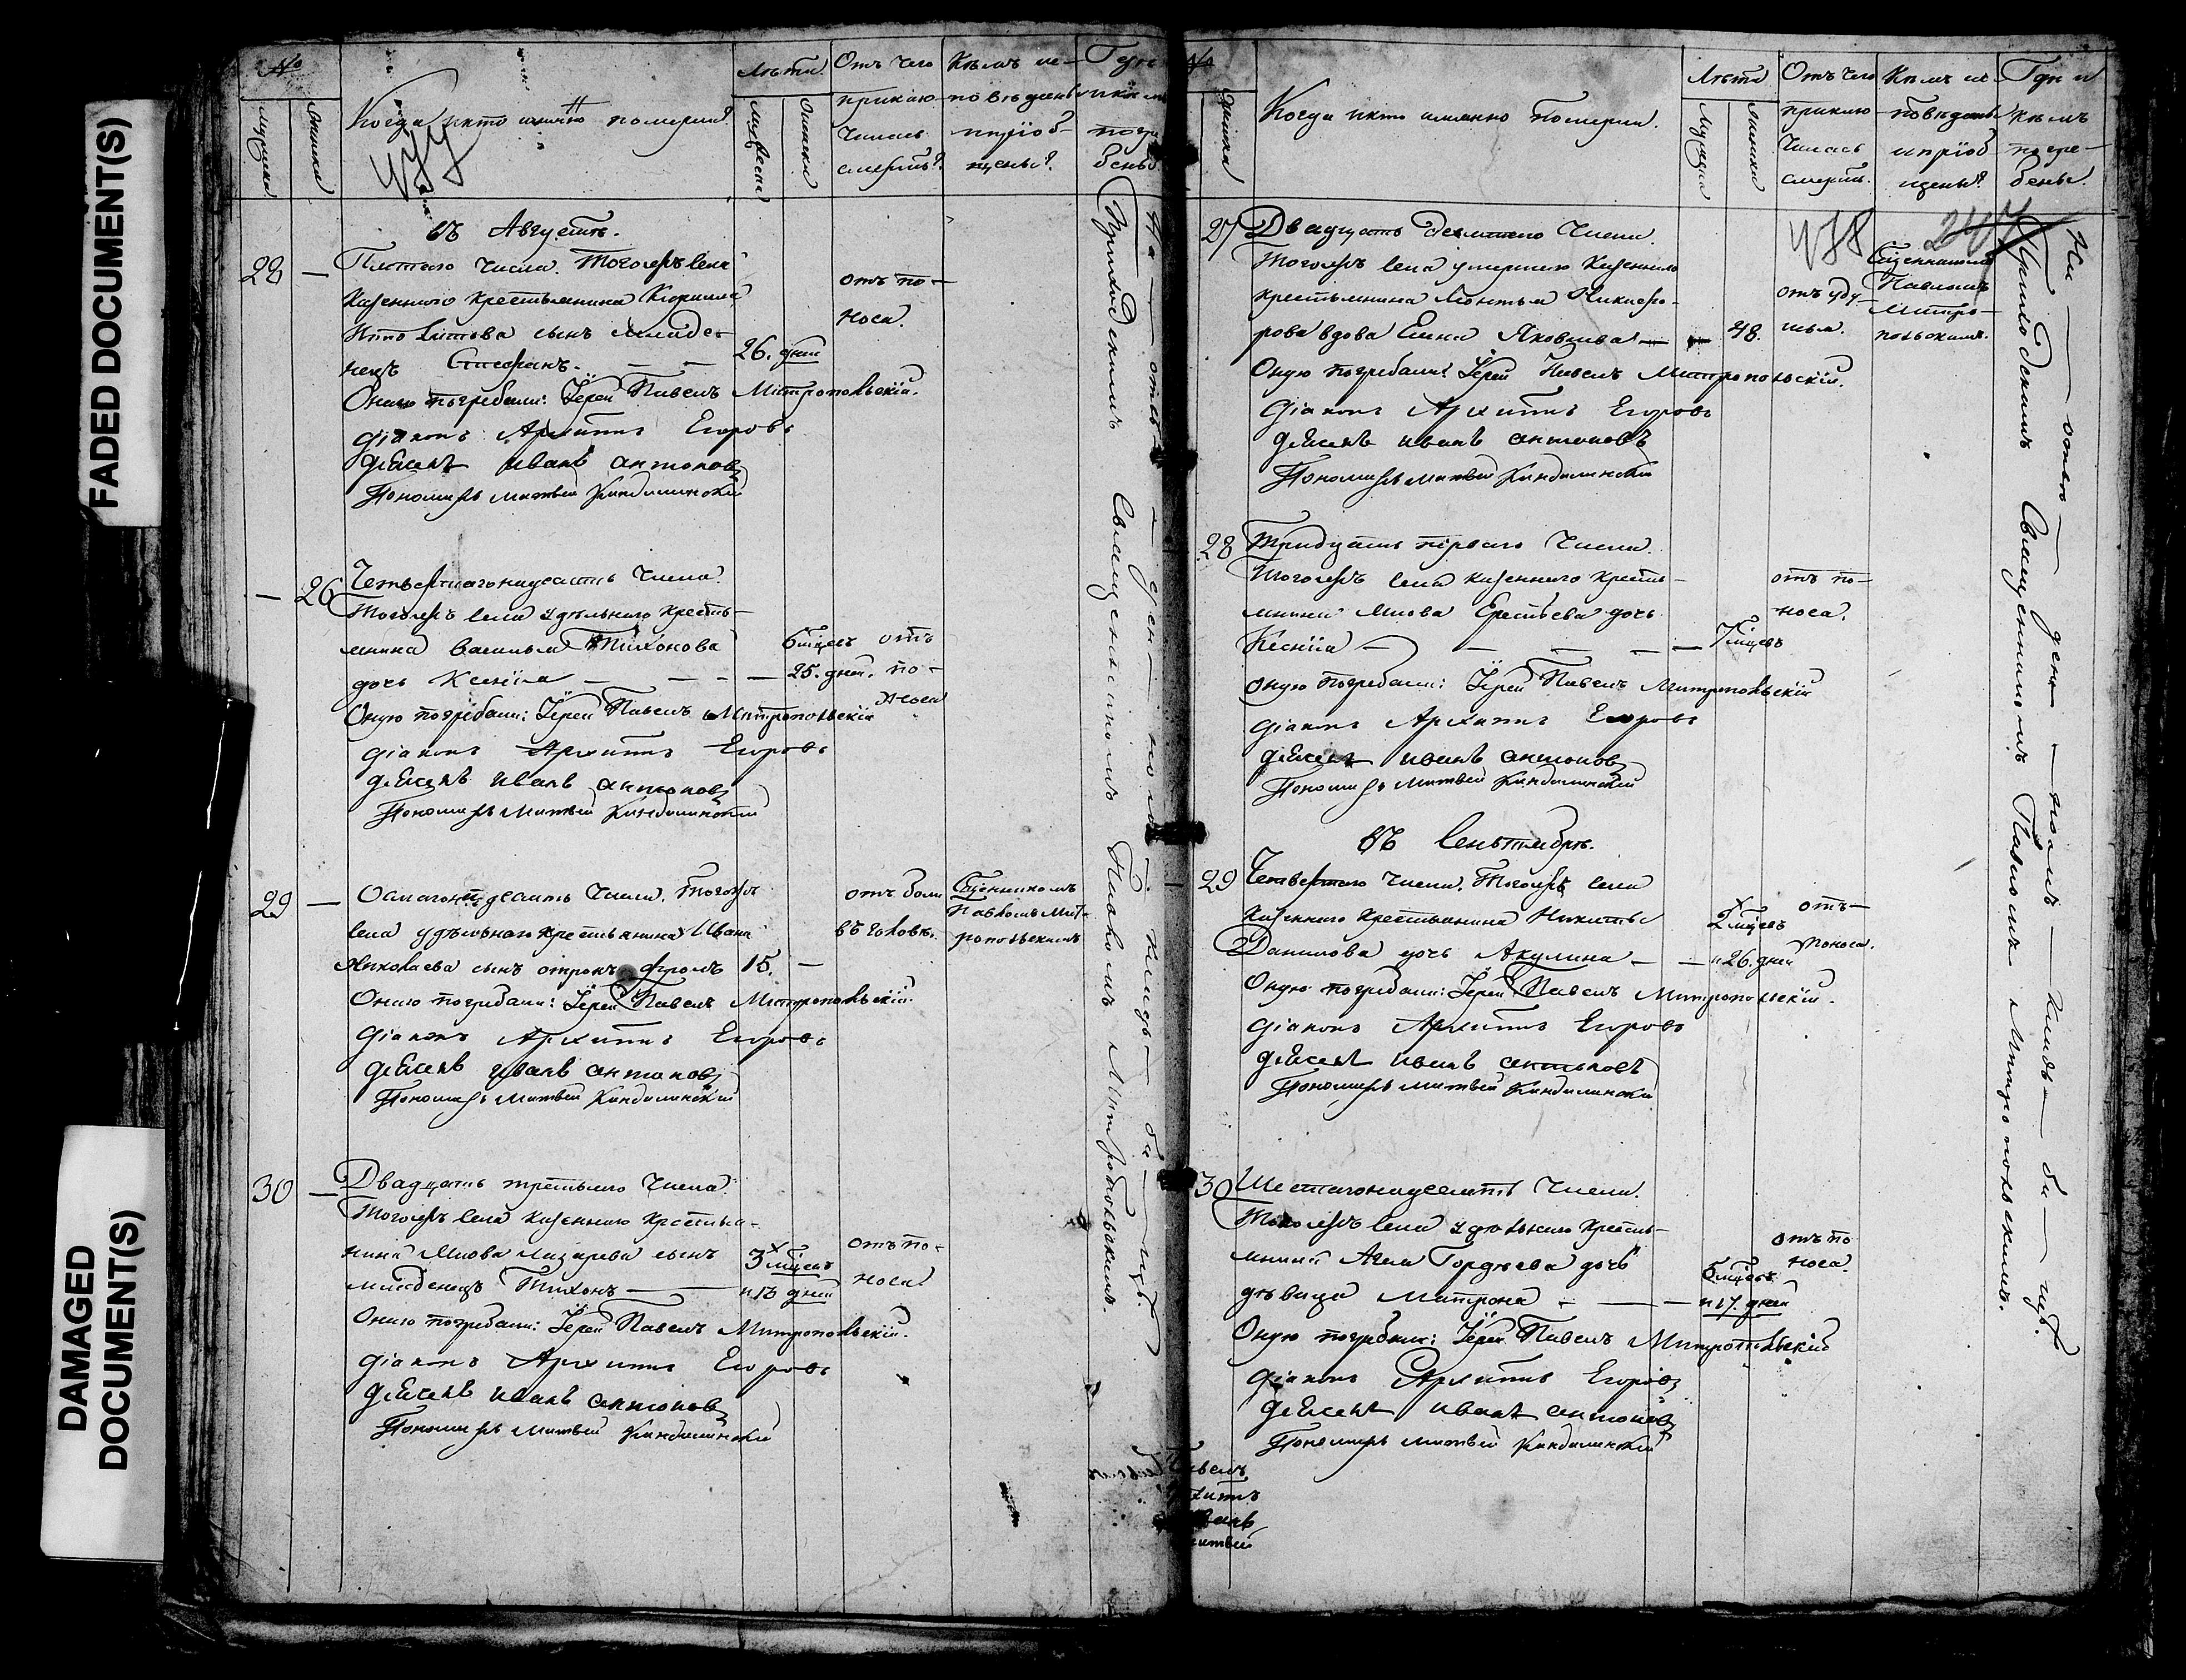 FADED DOCUMENT(S)
DAMAGED DOCUMENT(S)
№
Мужеска
Женска
Когда и кто именно померли?
Лѣта
Мужеска
Женска
Отъ чего приключилась смерть?
Кѣмъ исповѣданы и пріобщены?
477
Въ Августѣ.
28 — Пятаго числа. Тогожъ села
казеннаго крестьянина Кирилла
сынъ младе-
нецъ Стефанъ. — — 26. дней
отъ по-
носа.
Онаго погребали: Іерей Павелъ Митропольскій.
Діаконъ Архипъ Егоровъ
Дьячекъ Иванъ Антоновъ
Пономарь Матвей Кандалинскій
— 26 Четвертагонадесять числа.
Тогожъ села удѣльнаго кресть-
янина Василья Тихонова
дочь Ксенія — — — — 6 мцевъ 25. дней.
отъ по-
носа
Оную погребали: Іерей Павелъ Митропольскій
Діаконъ Архипъ Егоровъ
Дьячекъ Иванъ Антоновъ
Пономарь Матвей Кандалинскій
29 — Осмагонадесять числа. Тогожъ
села удѣльнаго крестьянина Ивана
Николаева сынъ отрокъ 15. —
отъ боли
въ головѣ.
Сщенникомъ
Павломъ Мит-
ропольскимъ
Онаго погребали: Іерей Павелъ Митропольскій.
Діаконъ Архипъ Егоровъ
Дьячекъ Иванъ Антоновъ
Пономарь Матвей Кандалинскій
30 — Двадцать третьяго числа.
Тогожъ села казеннаго крестья-
нина Лазарева сынъ
младенецъ Тихонъ — 3х мцевъ и 18 дней
отъ по-
носа
Онаго погребали: Іерей Павелъ Митропольскій.
Діаконъ Архипъ Егоровъ
Дьячекъ Иванъ Антоновъ
Пономарь Матвей Кандалинскій
Приходскимъ Священникомъ Павломъ Митропольскимъ.
№
Женска
Когда и кто именно померли.
Лѣта
Мужеска
Женска
Отъ чего приключилась смерть.
Кѣмъ исповѣданы и пріобщены?
Гдѣ и кѣмъ погребены.
478
247
27 Двадцать девятаго числа.
Тогожъ села умершаго казеннаго
крестьянина Леонтья Никифо-
рова вдова Елена Яковлева — 48.
отъ уду-
шья.
Сщенникомъ
Павломъ
Митро-
польскимъ.
Оную погребали: Іерей Павелъ Митропольскій.
Діаконъ Архипъ Егоровъ
Дьячекъ Иванъ Антоновъ
Пономарь Матвей Кандалинскій
28 Тридцать перваго числа.
Тогожъ села казеннаго кресть-
янина дочь
Ксенія — — — — — 7 мцевъ
отъ по-
носа.
Оную погребали: Іерей Павелъ Митропольскій
Діаконъ Архипъ Егоровъ
Дьячекъ Иванъ Антоновъ
Пономарь Матвей Кандалинскій
Въ Сентябрѣ.
29 Четвертаго числа. Тогожъ села
казеннаго крестьянина Никиты
Данилова дочь Акулина — — 2х мцевъ и 26. дней
отъ —
поноса.
Оную погребали: Іерей Павелъ Митропольскій.
Діаконъ Архипъ Егоровъ
Дьячекъ Иванъ Антоновъ
Пономарь Матвей Кандалинскій
30 Шестагонадесять числа.
Тогожъ села удѣльнаго кресть-
янина Гордѣева дочь
дѣвица Матрона — — — 6 мцевъ и 17. дней
отъ по
носа.
Оную погребали: Іерей Павелъ Митропольскій
Діаконъ Архипъ Егоровъ
Дьячекъ Иванъ Антоновъ
Пономарь Матвей Кандалинскій
На — отве — ден — номъ — кладъ — би — щѣ.
Приходскимъ Священникомъ Павломъ Митропольскимъ.